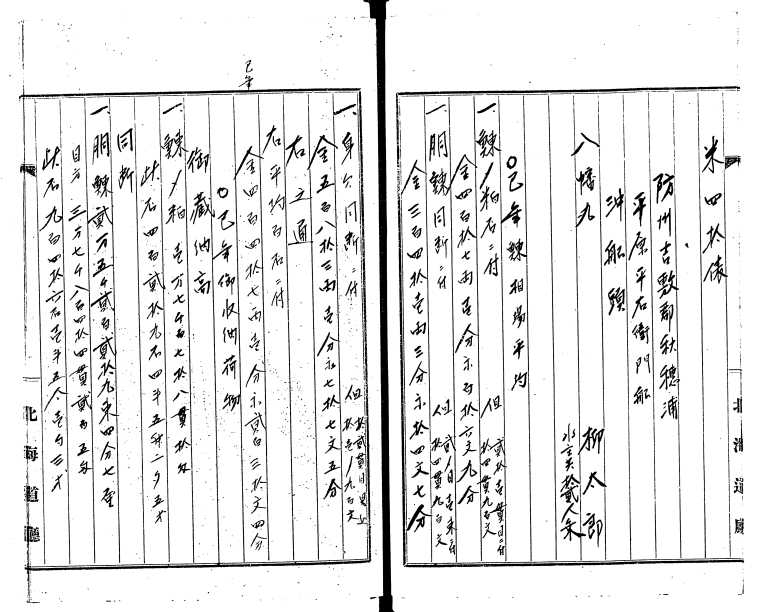 米四拾俵
防州吉敷郡秋穂浦
平原平右衛門船
沖船頭
柳太郎
八幡丸
水主共拾貳人乗
〇己年鰊相場平均
一、鰊〆粕百石ニ付
金四百拾七両壱分永百拾六文九分
一、胴鰊同断ニ付
金三百四拾壱両三分永拾四文七分
北海道廳
一、身欠同断ニ付
金五百八拾三両壱分永七拾七文五分
右之通
右平均百石ニ付
金四百四拾七両壱分永貳百三拾文四分
己年
〇己年御収納荷物
御蔵納高
一、鰊〆粕壱万七千百七拾八貫拾匁
此石四百貳拾九石四斗五升二夕五才
同断
一、胴鰊貳万五千貳百貳拾九束四分七厘
目方三万七千八百四拾四貫貳百五匁
此石九百四拾六石壱斗五合壱夕三才
北海道廳